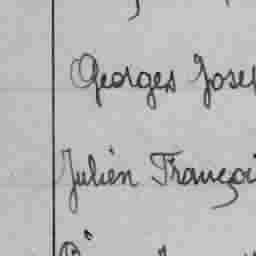 Georges Jose
Julien Françoi